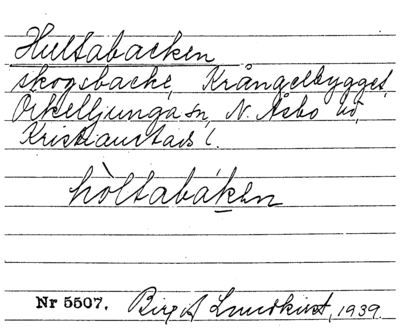 Hultabacken
skogsbacke, Krångelbygget,
Örkelljunga sn, N. Åsbo hd,
Kristianstads l.
hòltabáken
Nr 5507. Birgit Lundkvist, 1939.